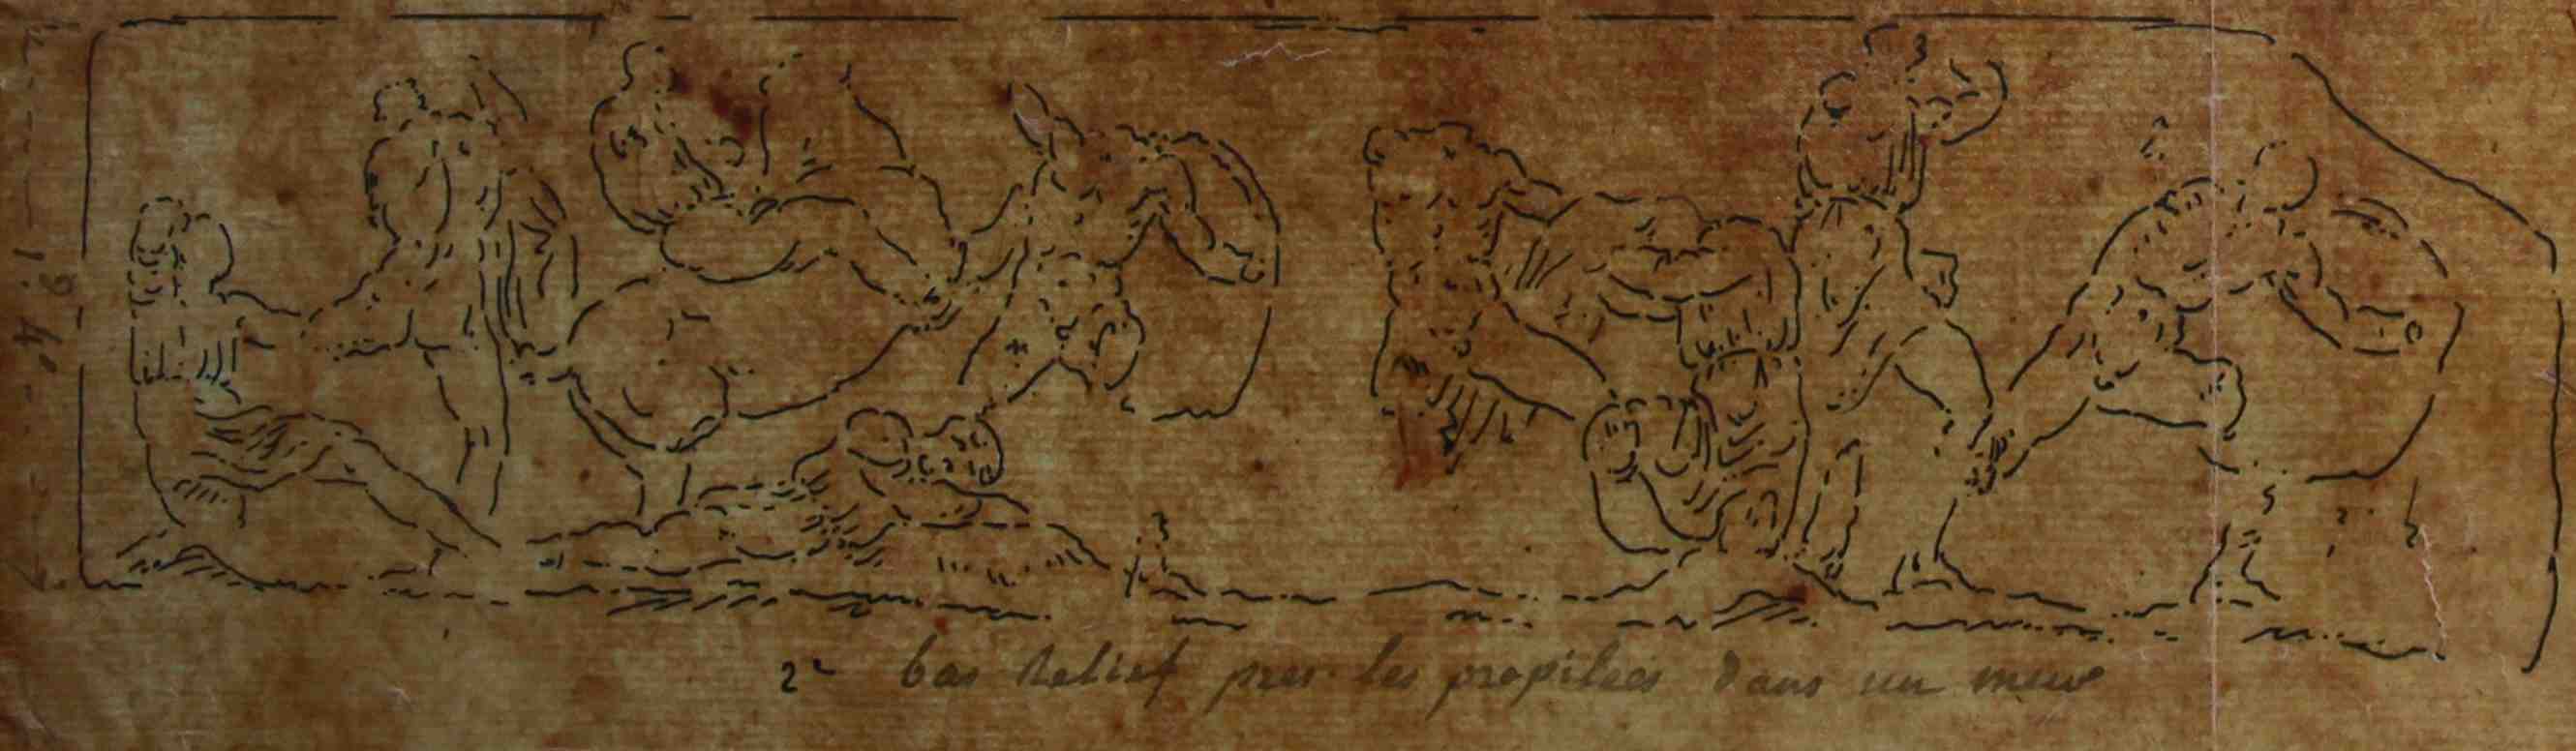 2e bas Relief pres les propilees dans un mur